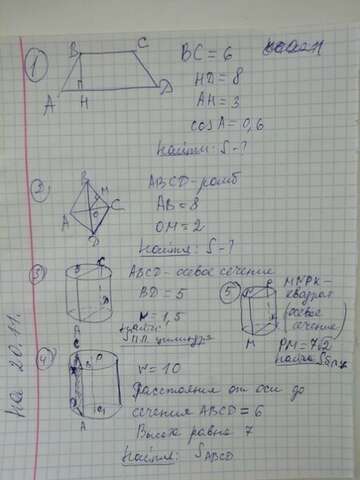 1
B C
A H D
BC = 6
HD = 8
AH = 3
cosA = 0,6
Найти: S-?
2
B
M
A O C
D
ABCD - ромб
AB = 8
OM = 2
Найти: S-?
3
ABCD - осевое сечение
BD = 5
= 1,5
Найти:
Sп.п. цилиндра
5
MNPK -
квадрат
(осевое
сечение)
M
PM = 7√2
найти Sб.п.ц.
4
r = 10
Расстояние от оси до
сечения ABCD = 6
Высота равна 7
Найти: SABCD
A
на 20.11.